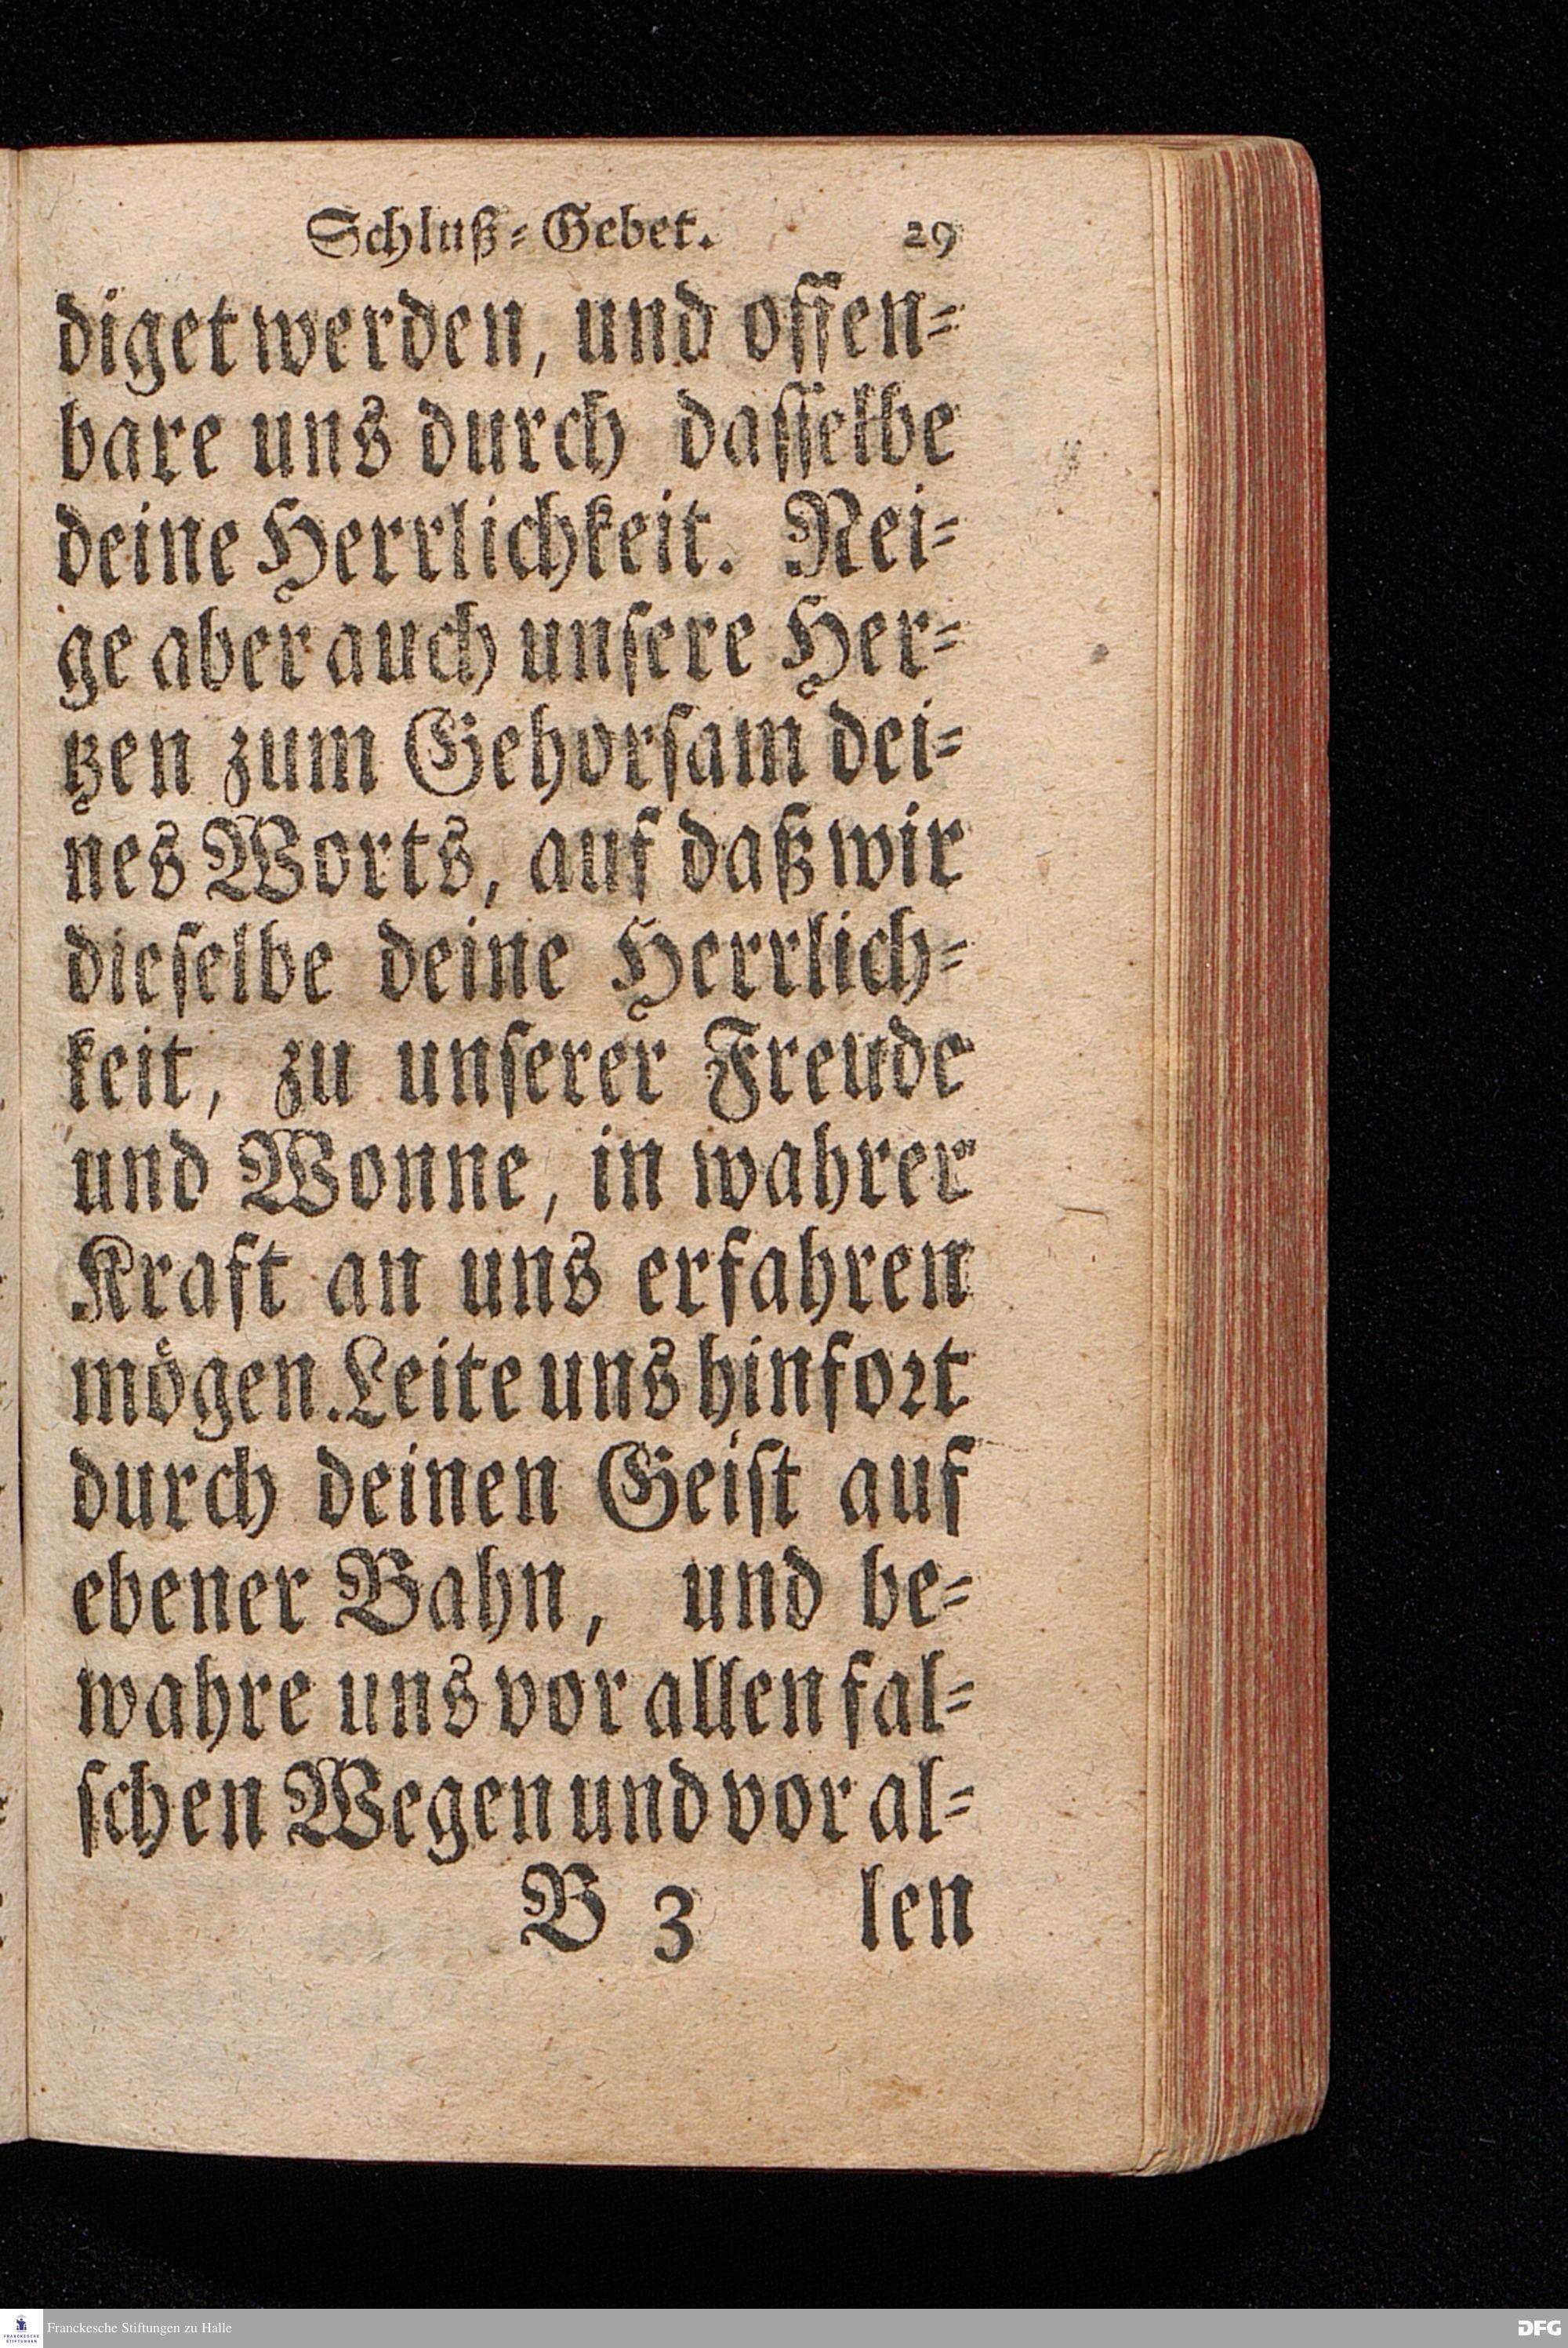 Schluß-Gebet. 29
diget werden, und offen-
bare uns durch dasselbe
deine Herrlichkeit. Nei-
ge aber auch unsere Her-
tzen zum Gehorsam dei-
nes Worts, auf daß wir
dieselbe deine Herrlich-
keit, zu unserer Freude
und Wonne, in wahrer
Kraft an uns erfahren
mögen. Leite uns hinfort
durch deinen Geist auf
ebener Bahn, und be-
wahre uns vor allen fal-
schen Wegen und vor al-
B 3 len
FRANCKESCHE
STIFTUNGEN
Franckesche Stiftungen zu Halle
DFG